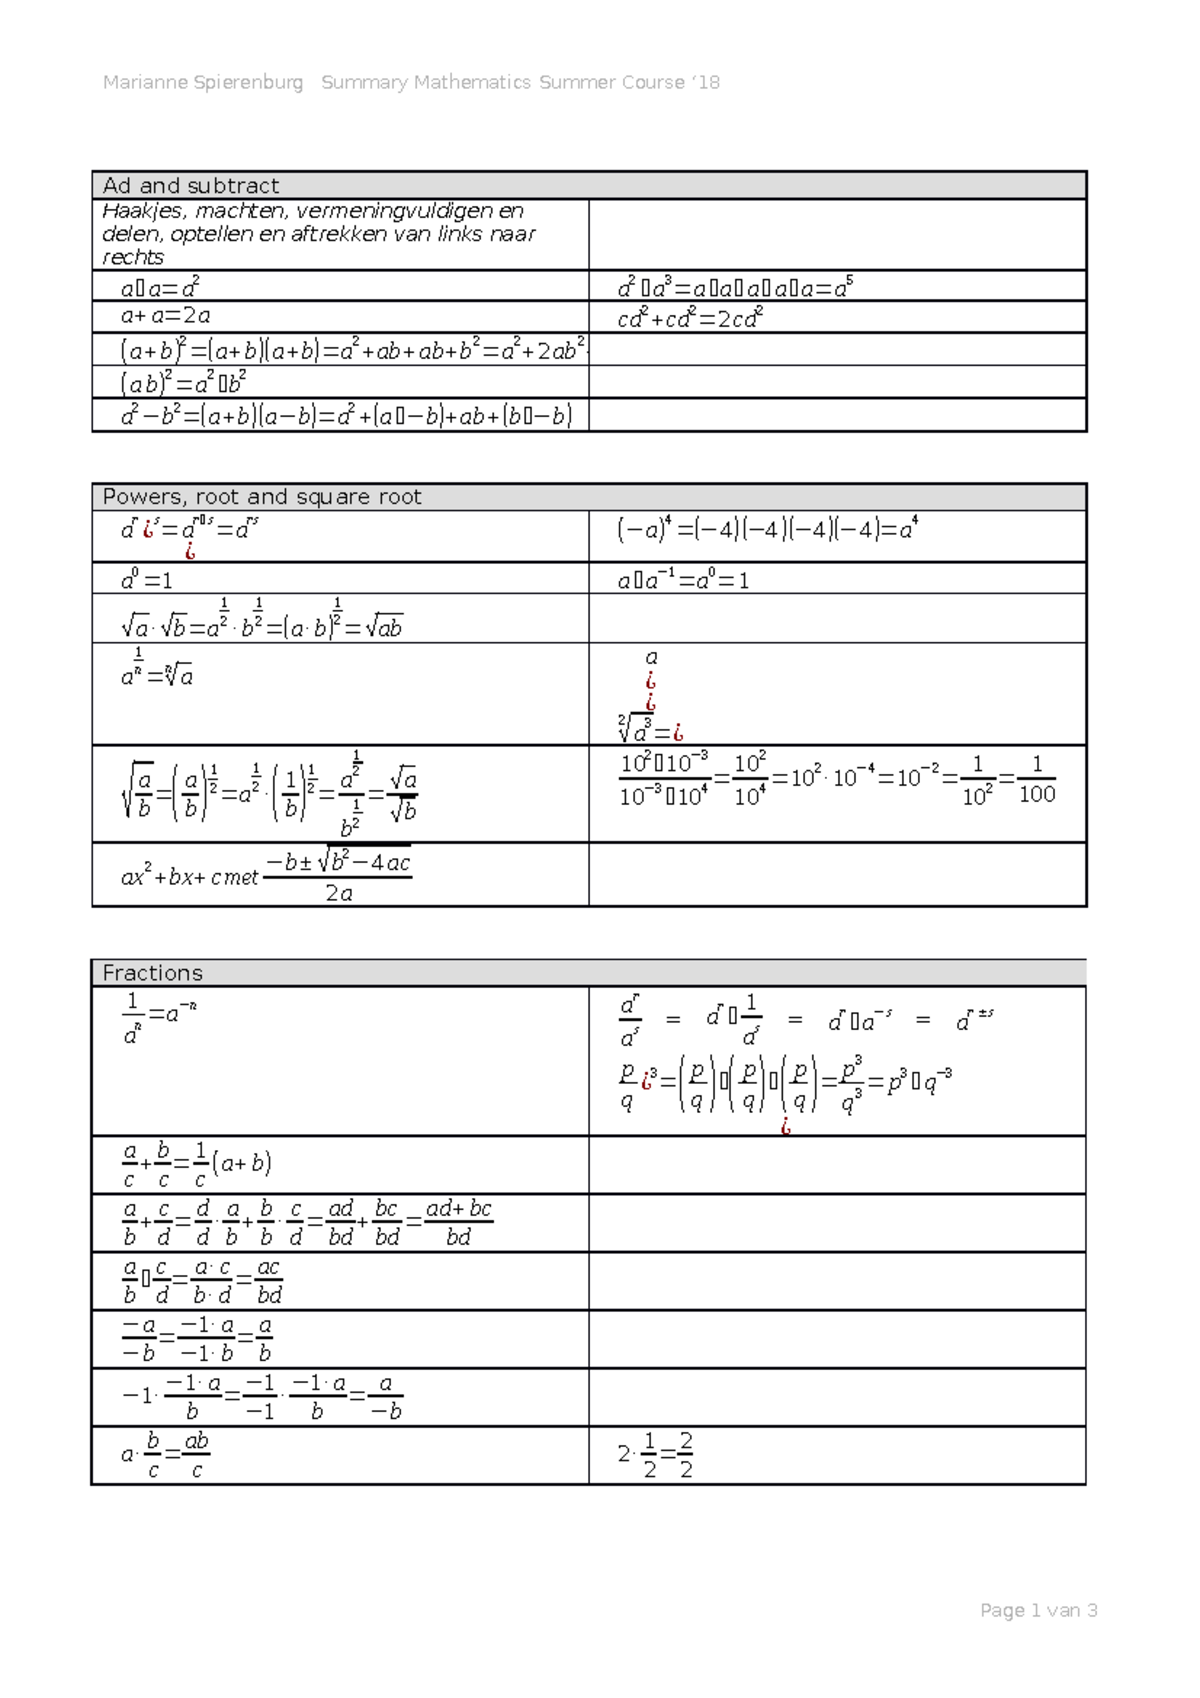 Marianne Spierenburg Summary Mathematics Summer Course ‘18
Ad and subtract
Haakjes, machten, vermeningvuldigen en
delen, optellen en aftrekken van links naar
rechts
a▯a=a² a²▯a³=a▯a▯a▯a▯a=a⁵
a+a=2a cd²+cd²=2cd²
(a+b)²=(a+b)(a+b)=a²+ab+ab+b²=a²+2ab²
(ab)²=a²▯b²
a²−b²=(a+b)(a−b)=a²+(a▯−b)+ab+(b▯−b)
Powers, root and square root
a^r ¿^s=a^(r▯s)=a^(rs) (−a)⁴=(−4)(−4)(−4)(−4)=a⁴
¿
a⁰=1 a▯a⁻¹=a⁰=1
√a·√b=a^(1/2)·b^(1/2)=(a·b)^(1/2)=√(ab)
a^(1/n)=ⁿ√a a
¿
¿
²√(a³)=¿
√(a/b)=(a/b)^(1/2)=a^(1/2)·(1/b)^(1/2)=a^(1/2)/b^(1/2)=√a/√b (10²▯10⁻³)/(10⁻³▯10⁴)=10²/10⁴=10²·10⁻⁴=10⁻²=1/10²=1/100
ax²+bx+c met (−b±√(b²−4ac))/(2a)
Fractions
1/aⁿ=a⁻ⁿ a^r/a^s = a^r▯1/a^s = a^r▯a^(−s) = a^(r±s)
p/q ¿³=(p/q)▯(p/q)▯(p/q)=p³/q³=p³▯q⁻³
¿
a/c+b/c=1/c(a+b)
a/b+c/d=d/d·a/b+b/b·c/d=ad/bd+bc/bd=(ad+bc)/bd
a/b▯c/d=(a·c)/(b·d)=ac/bd
−a/−b=(−1·a)/(−1·b)=a/b
−1·(−1·a)/b=−1/−1·(−1·a)/b=a/−b
a·b/c=ab/c 2·1/2=2/2
Page 1 van 3